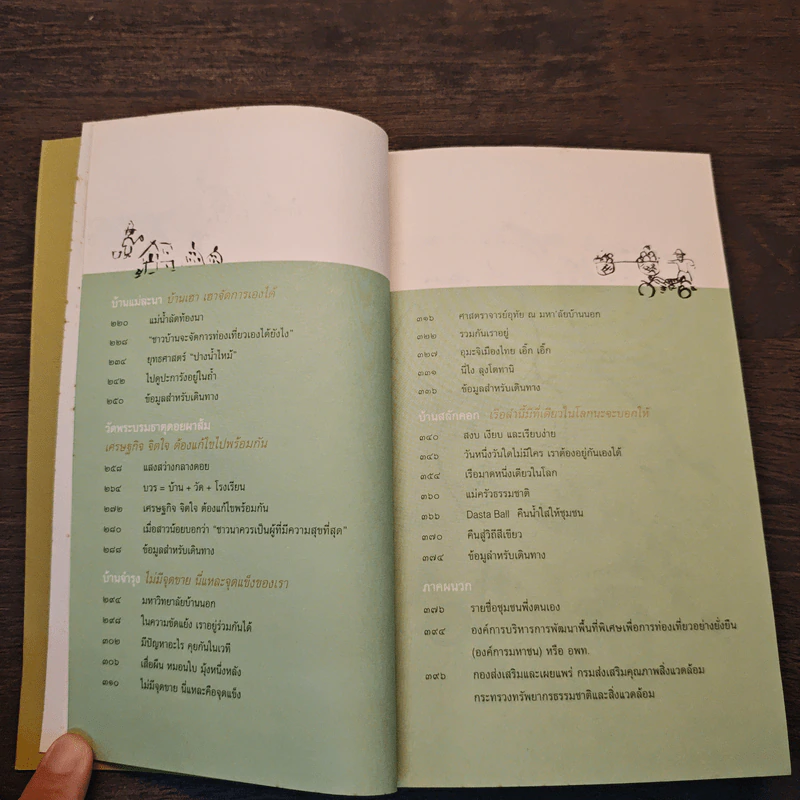 บ้านแม่ละนา บ้านเฮา เฮาจัดการเองได้
๒๒๐ แม่น้ำลัดท้องนา
๒๒๘ “ชาวบ้านจะจัดการท่องเที่ยวเองได้ยังไง”
๒๓๔ ยุทธศาสตร์ “ปางน้ำไหม้”
๒๔๒ ไปดูปะการังอยู่ในถ้ำ
๒๕๐ ข้อมูลสำหรับเดินทาง
วัดพระบรมธาตุดอยผาส้ม
เศรษฐกิจ จิตใจ ต้องแก้ไขไปพร้อมกัน
๒๕๘ แสงสว่างกลางดอย
๒๖๔ บวร = บ้าน + วัด + โรงเรียน
๒๗๒ เศรษฐกิจ จิตใจ ต้องแก้ไขพร้อมกัน
๒๘๐ เมื่อสาวน้อยบอกว่า “ชาวนาควรเป็นผู้ที่มีความสุขที่สุด”
๒๘๘ ข้อมูลสำหรับเดินทาง
บ้านจำรุง ไม่มีจุดขาย นี่แหละจุดแข็งของเรา
๒๙๔ มหาวิทยาลัยบ้านนอก
๒๙๘ ในความขัดแย้ง เราอยู่ร่วมกันได้
๓๐๒ มีปัญหาอะไร คุยกันในเวที
๓๐๖ เสื่อผืน หมอนใบ มุ้งหนึ่งหลัง
๓๑๐ ไม่มีจุดขาย นี่แหละคือจุดแข็ง
๓๑๖ ศาสตราจารย์อุทัย ณ มหา'ลัยบ้านนอก
๓๒๒ รวมกันเราอยู่
๓๒๗ อุมะจิเมืองไทย เอิ๊ก เอิ๊ก
๓๓๑ นี่ไง ลุงโตทานิ
๓๓๖ ข้อมูลสำหรับเดินทาง
บ้านสลักคอก เรือลำนี้มีที่เดียวในโลกนะจะบอกให้
๓๔๐ สงบ เงียบ และเรียบง่าย
๓๔๖ วันหนึ่งวันใดไม่มีใคร เราต้องอยู่กันเองได้
๓๕๔ เรือมาดหนึ่งเดียวในโลก
๓๖๐ แม่ครัวธรรมชาติ
๓๖๖ Dasta Ball คืนน้ำใสให้ชุมชน
๓๗๐ คืนสู่วิถีสีเขียว
๓๗๔ ข้อมูลสำหรับเดินทาง
ภาคผนวก
๓๗๖ รายชื่อชุมชนพึ่งตนเอง
๓๙๔ องค์การบริหารการพัฒนาพื้นที่พิเศษเพื่อการท่องเที่ยวอย่างยั่งยืน
(องค์การมหาชน) หรือ อพท.
๓๙๖ กองส่งเสริมและเผยแพร่ กรมส่งเสริมคุณภาพสิ่งแวดล้อม
กระทรวงทรัพยากรธรรมชาติและสิ่งแวดล้อม